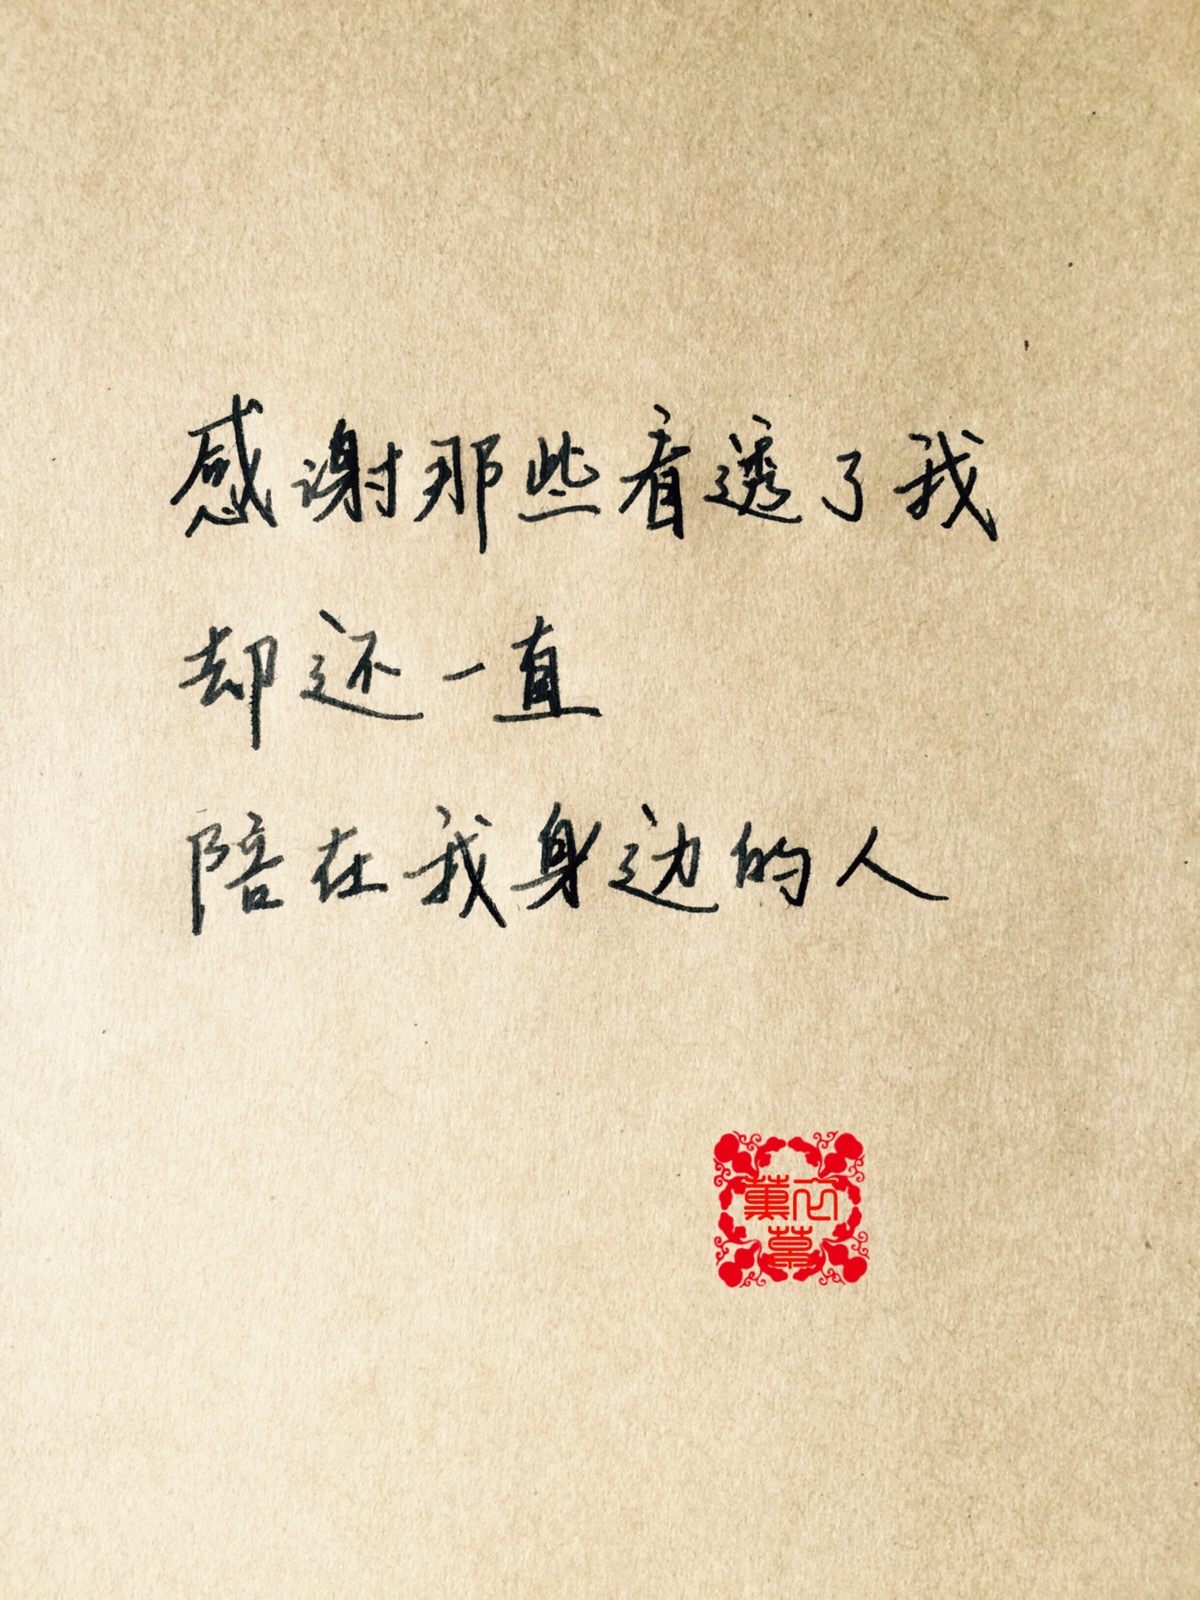 感谢那些看透了我
却还一直
陪在我身边的人
薰衣
草